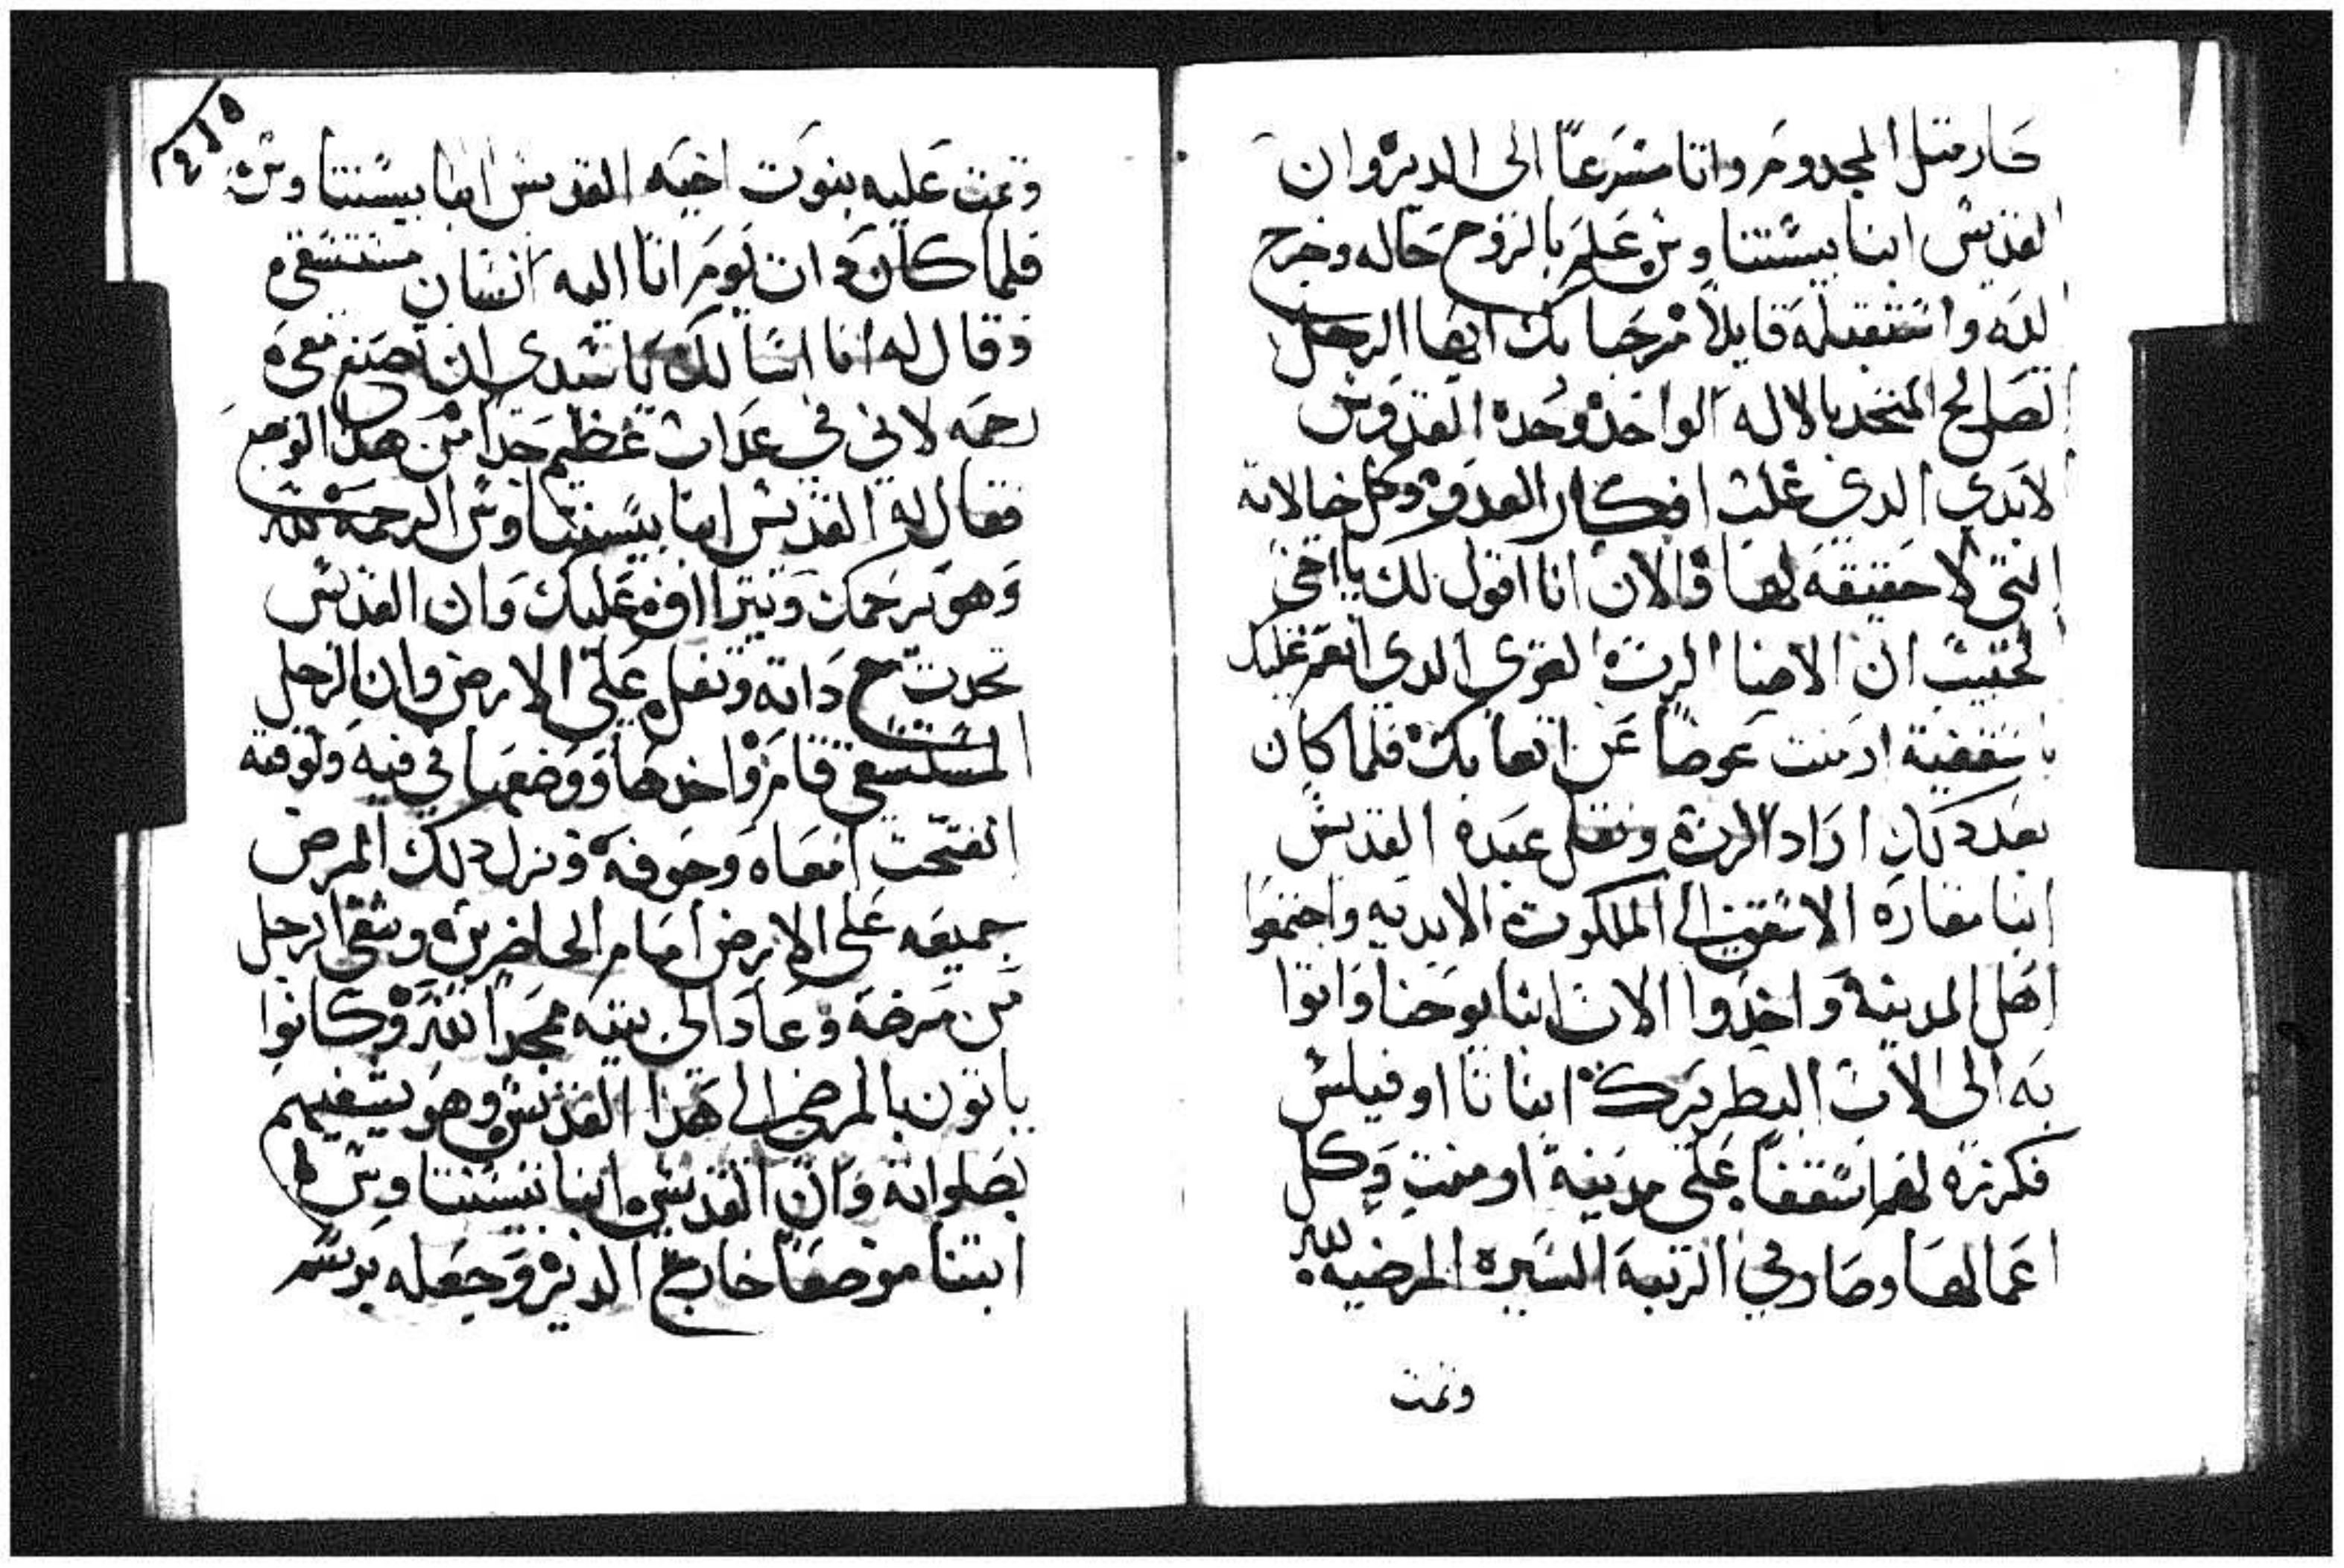 صار متل المجدوم واتا مسرعا الى الدير وان
القديس انبا بيسنتاوس علم بالروح حاله وخرج
اليه واستقبله قايلا مرحبا بك ايها الرجل
الصالح المتحد بالاله الواحد وحده القدوس
الابدي الدي غلب افكار العدو وكل خيالاته
التي لا حقيقه لها والان انا اقول لك يا اخي
الحبيب ان الامنا الرب القوي الدي انعم عليك
باسقفية ارمنت عوضا عن اتعابك فلما كان
بعد دلك اراد الرب ونقل عبده القديس
انبا مقاره الاسقف الى الملكوت الابديه واجتمعوا
اهل المدينة واخدوا الاب انبا يوحنا واتوا
به الى الاب البطريرك انبا تااوفيلس
فكرزه لهم اسقفا على مدينة ارمنت وكل
اعمالها وصار في الرتبه السيره المرضيه لله
وتمت
٢٤٥
وتمت عليه بنوت اخيه القديس انبا بيسنتاوس
فلما كان دات يوم اتا اليه انسان مستسقي
وقال له انا اسالك يا سيدي ان تصنع معي
رحمه لاني في عداب عظيم جدا من هدا الوجع
فقال له القديس انبا بيسنتاوس الرحمه لله
وهو يرحمك ويتراوف عليك وان القديس
تحدت مع داته وتفل على الارض وان الرجل
المستسقي قام واخدها ووضعها في فيه ولوقته
انفتحت امعاه وجوفه ونزل دلك المرض
جميعه على الارض امام الحاضرين وشفي الرجل
من مرضه وعاد الى بيته ممجدا لله وكانوا
ياتون بالمرضى الى هدا القديس وهو يشفيهم
بصلواته وان القديس انبا بيسنتاوس
ابتنا موضعا خارج الدير وجعله برسم